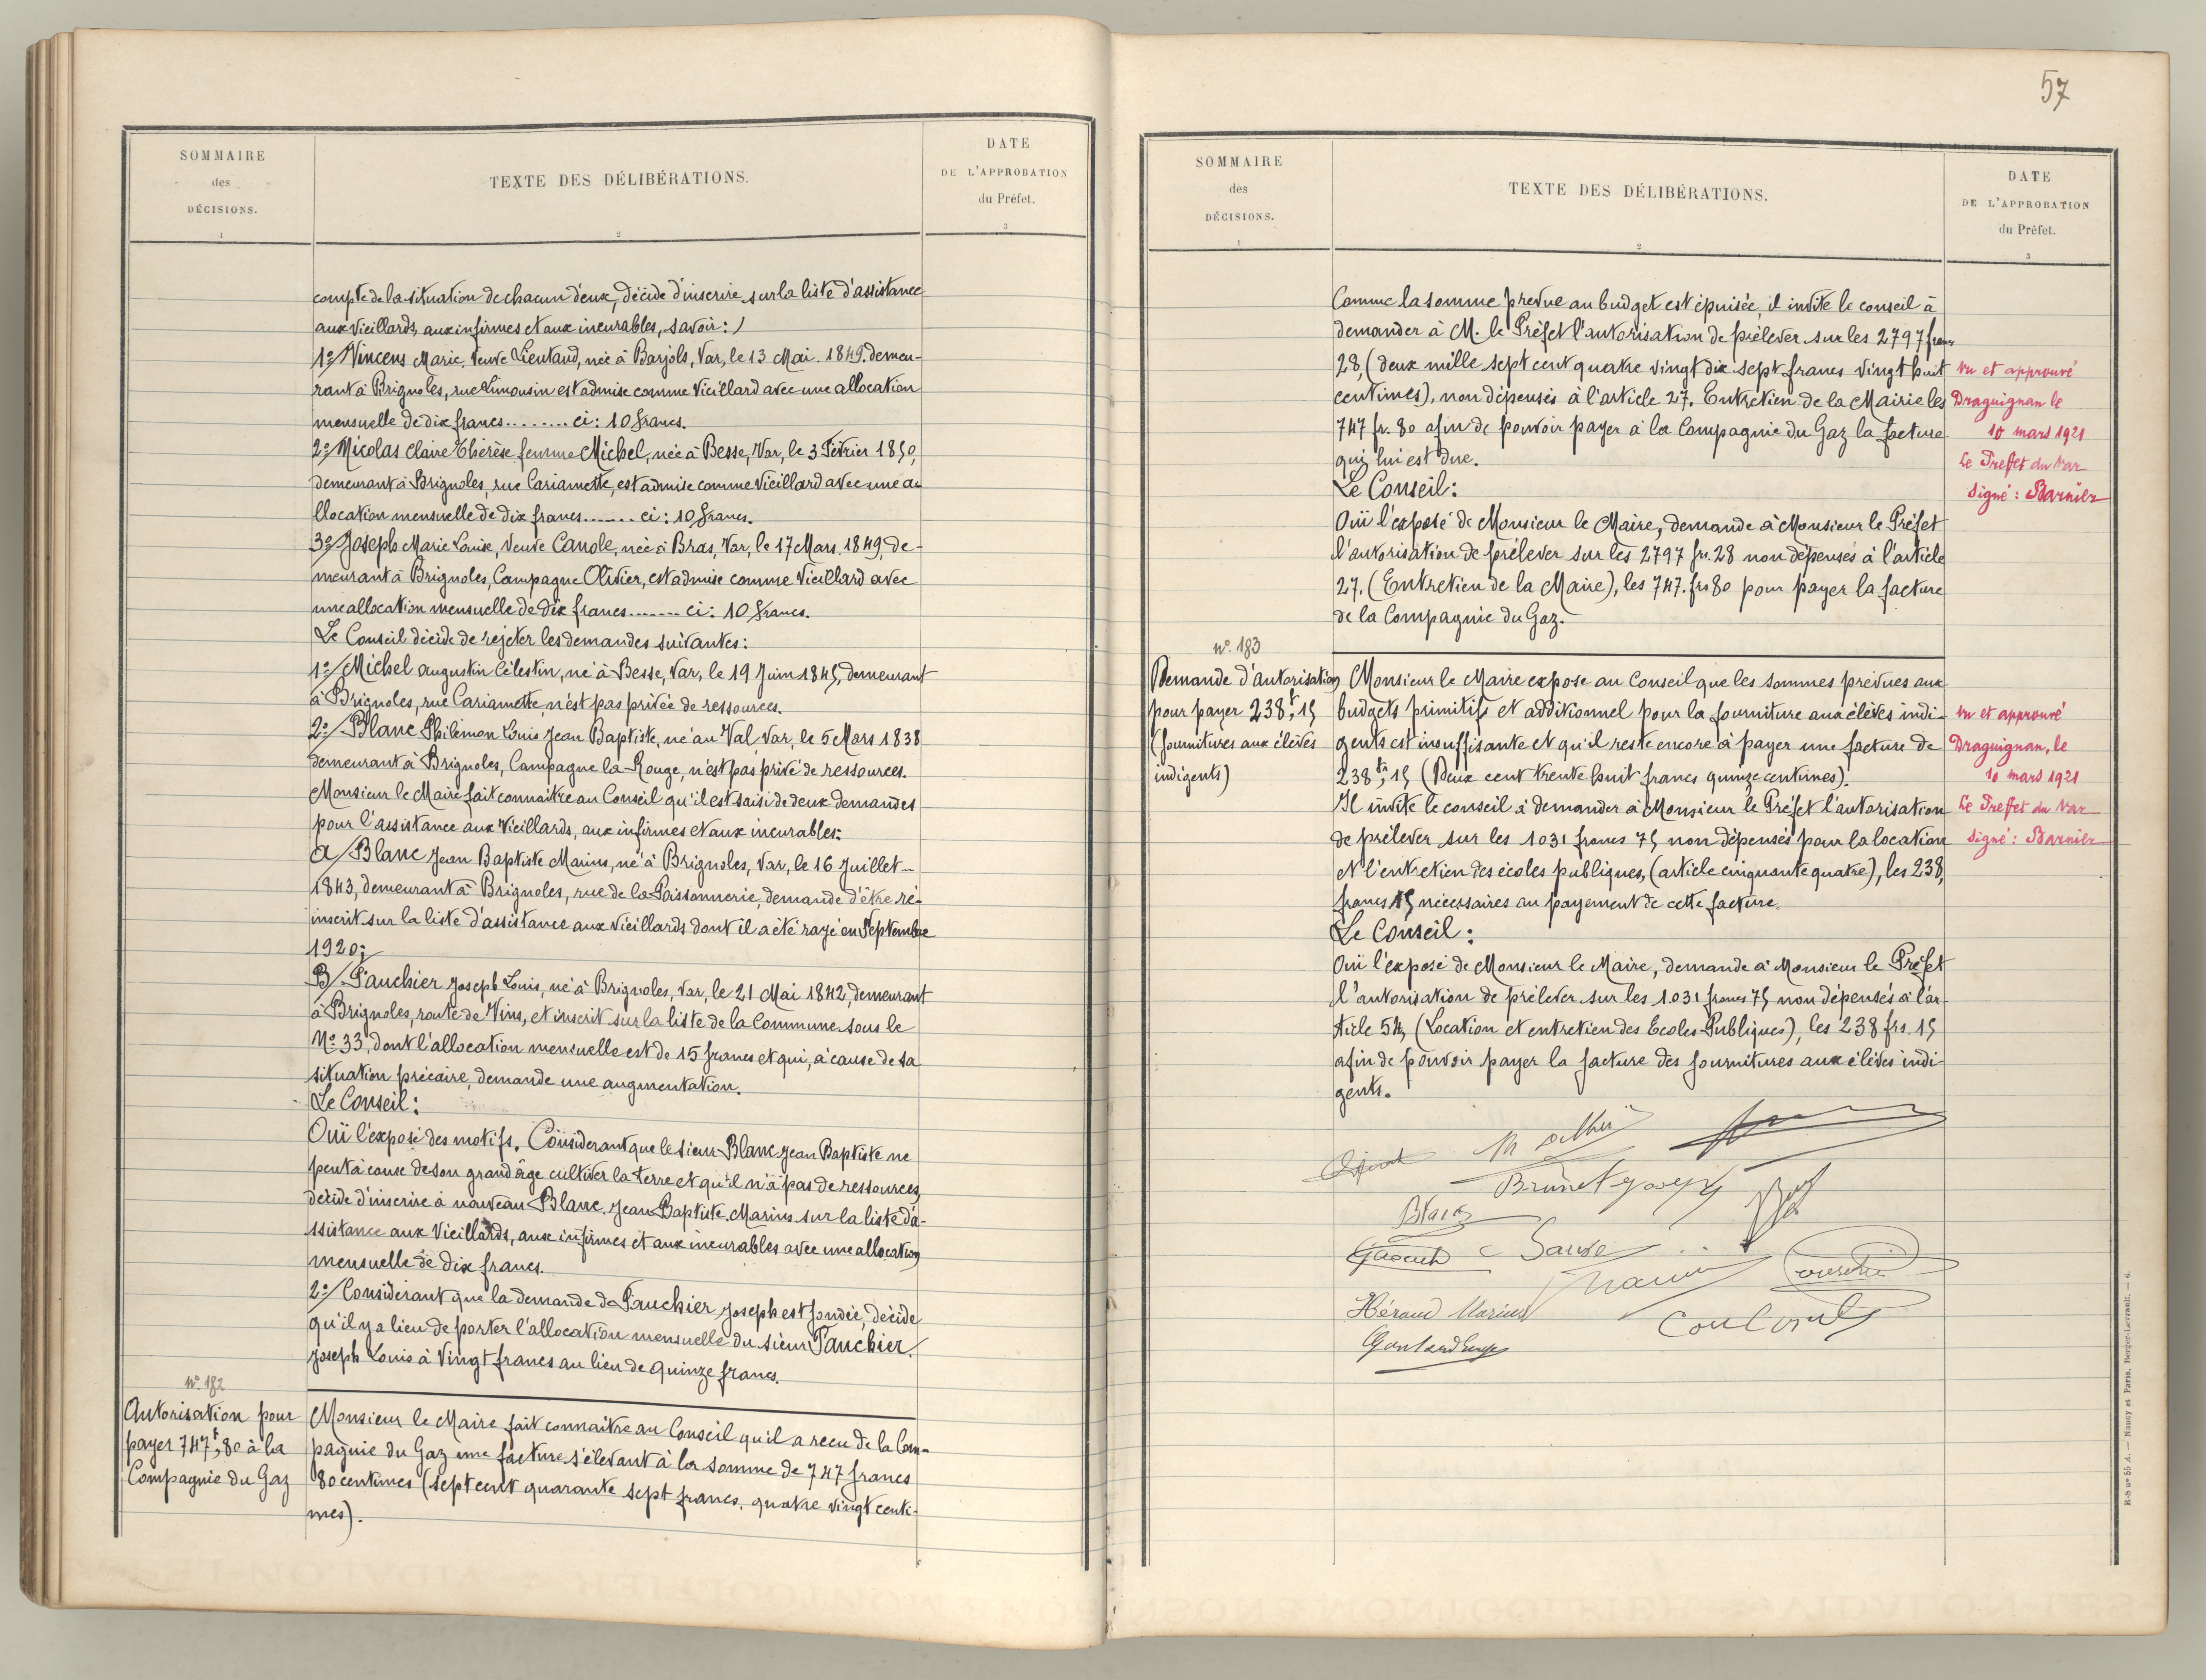 SOMMAIRE
des
DÉCISIONS.
1
TEXTE DES DÉLIBÉRATIONS.
2
DATE
DE L'APPROBATION
du Préfet.
3
compte de la situation de chacun d'eux, décide d'inscrire sur la liste d'assistance
aux Vieillards, aux infirmes et aux incurables, savoir:
1º/ Vincens Marie, Veuve Lieutaud, née à Barjols, Var, le 13 Mai 1849. demeu-
rant à Brignoles, rue Limousin est admise comme Vieillard avec une allocation
mensuelle de dix francs........ ci: 10 francs.
2º/ Nicolas Claire Thérèse femme Michel, née à Besse, Var, le 3 Février 1850,
demeurant à Brignoles, rue Cariamette, est admise comme Vieillard avec une a-
llocation mensuelle de dix francs....... ci: 10 francs.
3º/ Joseph Marie Louise, Veuve Canole, née à Bras, Var, le 17 Mars 1849, de-
meurant à Brignoles, Campagne Olivier, est admise comme Vieillard avec
une allocation mensuelle de dix francs....... ci: 10 francs.
Le Conseil décide de rejeter les demandes suivantes:
1º/ Michel Augustin Célestin, né à Besse, Var, le 19 Juin 1845, demeurant
à Brignoles, rue Cariamette, n'est pas privée de ressources.
2º/ Blanc Philémon Louis Jean Baptiste, né au Val Var, le 5 Mars 1838
demeurant à Brignoles, Campagne la Rouge, n'est pas privé de ressources.
Monsieur le Maire fait connaitre au Conseil qu'il est saisi de deux demandes
pour l'assistance aux Vieillards, aux infirmes et aux incurables:
A/ Blanc Jean Baptiste Marius, né à Brignoles, Var, le 16 Juillet
1843, demeurant à Brignoles, rue de la Poissonnerie, demande d'être ré-
inscrit sur la liste d'assistance aux Vieillards dont il a été rayé en Septembre
1920;
B/ Fauchier Joseph Louis, né à Brignoles, Var, le 21 Mai 1842, demeurant
à Brignoles, route de Vins, et inscrit sur la liste de la Commune sous le
Nº 33, dont l'allocation mensuelle est de 15 francs et qui, à cause de sa
situation précaire, demande une augmentation.
Le Conseil:
Ouï l'exposé des motifs. Considérant que le sieur Blanc Jean Baptiste ne
peut à cause de son grand âge cultiver la terre et qu'il n'a pas de ressources,
décide d'inscrire à nouveau Blanc Jean Baptiste Marius sur la liste d'a-
ssistance aux Vieillards, aux infirmes et aux incurables avec une allocation
mensuelle de dix francs.
2º/ Considérant que la demande de Fauchier Joseph est fondée, décide
qu'il y a lieu de porter l'allocation mensuelle du sieur Fauchier
Joseph Louis à Vingt francs au lieu de quinze francs.
Nº 182
Autorisation pour
payer 747f,80 à la
Compagnie du Gaz
Monsieur le Maire fait connaitre au Conseil qu'il a recu de la Com-
pagnie du Gaz une facture s'élevant à la somme de 747 francs
80 centimes (sept cent quarante sept francs, quatre vingt centi-
mes).
57
SOMMAIRE
des
DÉCISIONS.
1
TEXTE DES DÉLIBÉRATIONS.
2
DATE
DE L'APPROBATION
du Préfet.
3
Comme la somme prévue au budget est épuisée, il invite le conseil à
demander à M. le Préfet l'autorisation de prélever sur les 2797 francs
28, (deux mille sept cent quatre vingt dix sept francs vingt huit
centimes), non dépensés à l'article 27. Entretien de la Mairie les
747 fr. 80 afin de pouvoir payer à la Compagnie du Gaz la facture
qui lui est due.
Vu et approuvé
Draguignan le
10 mars 1921
Le Preffet du Var
Signé: Barnier
Le Conseil:
Ouï l'exposé de Monsieur le Maire, demande à Monsieur le Préfet
l'autorisation de prélever sur les 2797 fr. 28 non dépensés à l'article
27. (Entretien de la Maire), les 747. frs 80 pour payer la facture
de la Compagnie du Gaz.
Nº 183
Demande d'autorisation
pour payer 238f,15
(fournitures aux élèves
indigents)
Monsieur le Maire expose au Conseil que les sommes prévues aux
budgets primitifs et additionnel pour la fourniture aux élèves indi-
gents est insuffisante et qu'il reste encore à payer une facture de
238frs,15 (Deux cent trente huit francs quinze centimes).
Il invite le conseil à demander à Monsieur le Préfet l'autorisation
de prélever sur les 1031 francs 75 non dépensés pour la location
et l'entretien des écoles publiques, (article cinquante quatre), les 238,
francs 15 nécessaires au payement de cette facture.
Vu et approuvé
Draguignan, le
10 mars 1921
Le Preffet du Var
Signé: Barnier
Le Conseil:
Ouï l'exposé de Monsieur le Maire, demande à Monsieur le Préfet
l'autorisation de prélever sur les 1.031 francs 75 non dépensés à l'ar-
ticle 54, (Location et entretien des Ecoles Publiques), les 238 frs. 15
afin de pouvoir payer la facture des fournitures aux élèves indi-
gents.
Brunet Joseph
Blanc
Héraud Marius
Coulomb
R-S nº 55 A. — Nancy et Paris. Berger-Levrault. — 6.